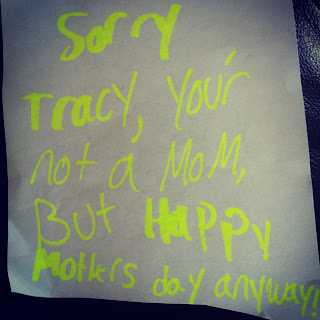 Sorry
Tracy, your
not a MoM,
But Happy
Mothers day anyway!